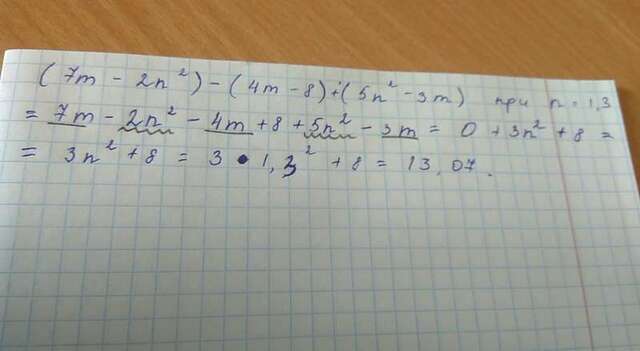 (7m - 2n²) - (4m - 8) + (5n² - 3m) при n = 1,3
= 7m - 2n² - 4m + 8 + 5n² - 3m = 0 + 3n² + 8 =
= 3n² + 8 = 3 • 1,3² + 8 = 13,07.